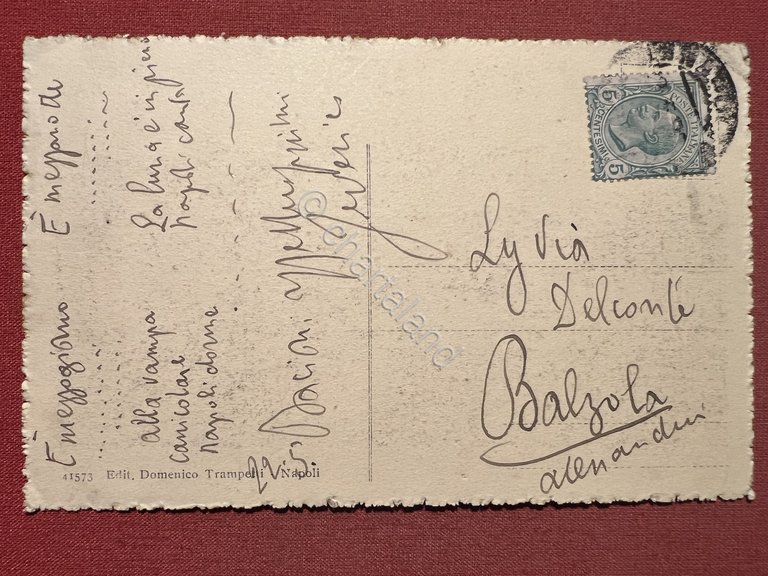 È mezzogiorno
. . . . . . . . .
. . . . . .
alla vampa
canicolare
Napoli dorme
È mezzanotte
. . . . . .
. . . . . . .
La luna è in pieno
Napoli canta
Bacioni
29
41573 Edit. Domenico Trampetti - Napoli
Lydia
Delconte
Balzola
Alessandria
POSTE ITALIANE
5 CENTESIMI 5
© chartaland